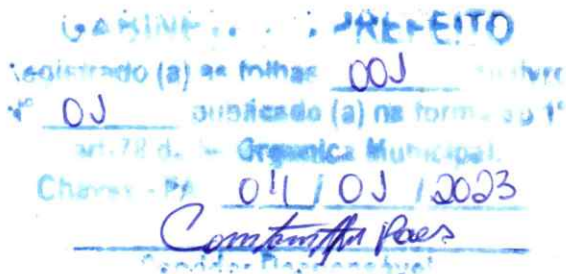 GABINETE PREFEITO
Registrado (a) as folhas 001 livro
Nº 01 publicado (a) na forma do 1º
art.78 d. Organica Municipal.
Chaves - PA 04 / 01 / 2023
Paes
Servidor Responsável